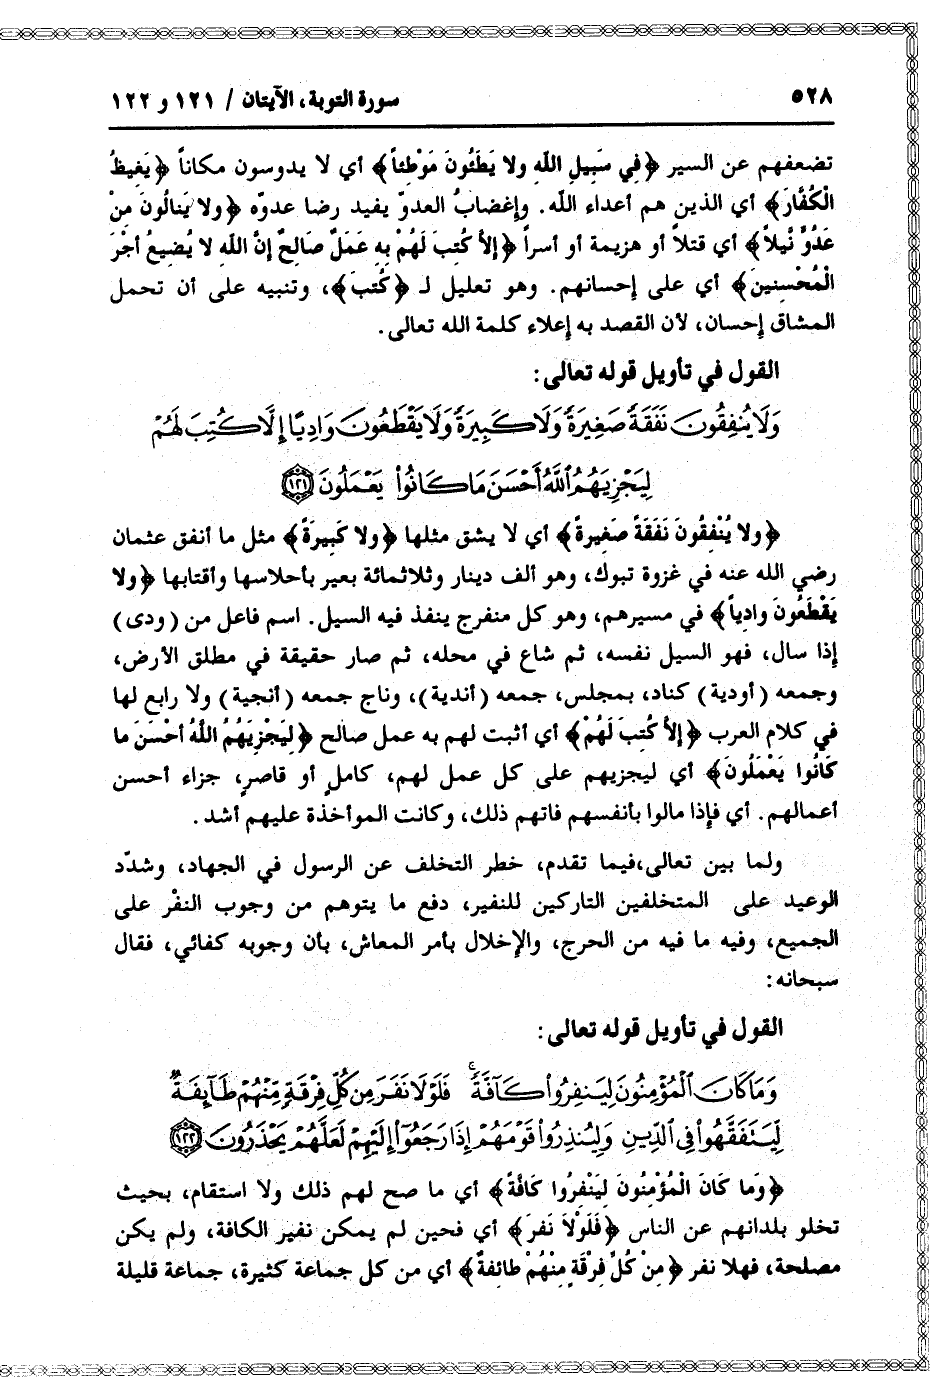 ٥٢٨
سورة التوبة، الآيتان / ١٢١ و ١٢٢
تضعفهم عن السير ﴿فِي سَبِيلِ اللَّهِ ولا يَطَئُونَ مَوْطِئاً﴾ أي لا يدوسون مكاناً ﴿يَغِيظُ
الْكُفَّارَ﴾ أي الذين هم أعداء الله. وإغضابُ العدوّ يفيد رضا عدوّه ﴿ولا يَنالُونَ مِنْ
عَدُوٍّ نَّيلاً﴾ أي قتلاً أو هزيمة أو أسراً ﴿إلاَّ كُتِبَ لَهُمْ بِهِ عَمَلٌ صَالِحٌ إِنَّ اللَّهَ لا يُضِيعُ أَجْرَ
الْمُحْسِنِينَ﴾ أي على إحسانهم. وهو تعليل لـ ﴿كُتِبَ﴾، وتنبيه على أن تحمل
المشاق إحسان، لأن القصد به إعلاء كلمة الله تعالى.
القول في تأويل قوله تعالى:
وَلَا يُنفِقُونَ نَفَقَةً صَغِيرَةً وَلَا كَبِيرَةً وَلَا يَقْطَعُونَ وَادِيًا إِلَّا كُتِبَ لَهُمْ
لِيَجْزِيَهُمُ ٱللَّهُ أَحْسَنَ مَا كَانُوا۟ يَعْمَلُونَ ﴿١٢١﴾
﴿ولا يُنْفِقُونَ نَفَقَةً صَغِيرةً﴾ أي لا يشق مثلها ﴿ولا كَبِيرَةً﴾ مثل ما أنفق عثمان
رضي الله عنه في غزوة تبوك، وهو ألف دينار وثلاثمائة بعير بأحلاسها وأقتابها ﴿ولا
يَقْطَعُونَ وادِياً﴾ في مسيرهم، وهو كل منفرج ينفذ فيه السيل. اسم فاعل من (ودى)
إذا سال، فهو السيل نفسه، ثم شاع في محله، ثم صار حقيقة في مطلق الأرض،
وجمعه (أودية) كناد، بمجلس، جمعه (أندية)، وناج جمعه (أنجية) ولا رابع لها
في كلام العرب ﴿إلاَّ كُتِبَ لَهُمْ﴾ أي أثبت لهم به عمل صالح ﴿لِيَجْزِيَهُمُ اللَّهُ أَحْسَنَ ما
كَانُوا يَعْمَلُونَ﴾ أي ليجزيهم على كل عمل لهم، كاملٍ أو قاصرٍ، جزاء أحسن
أعمالهم. أي فإذا مالوا بأنفسهم فاتهم ذلك، وكانت المؤاخذة عليهم أشد.
ولما بين تعالى،فيما تقدم، خطر التخلف عن الرسول في الجهاد، وشدّد
الوعيد على المتخلفين التاركين للنفير، دفع ما يتوهم من وجوب النفْر على
الجميع، وفيه ما فيه من الحرج، والإخلال بأمر المعاش، بأن وجوبه كفائي، فقال
سبحانه:
القول في تأويل قوله تعالى:
وَمَا كَانَ ٱلْمُؤْمِنُونَ لِيَنفِرُوا۟ كَآفَّةً ۚ فَلَوْلَا نَفَرَ مِن كُلِّ فِرْقَةٍ مِّنْهُمْ طَآئِفَةٌ
لِّيَتَفَقَّهُوا۟ فِى ٱلدِّينِ وَلِيُنذِرُوا۟ قَوْمَهُمْ إِذَا رَجَعُوٓا۟ إِلَيْهِمْ لَعَلَّهُمْ يَحْذَرُونَ ﴿١٢٢﴾
﴿وَما كَانَ الْمُؤْمِنُونَ لِيَنْفِرُوا كَافَّةً﴾ أي ما صح لهم ذلك ولا استقام، بحيث
تخلو بلدانهم عن الناس ﴿فَلَوْلاَ نَفرَ﴾ أي فحين لم يمكن نفير الكافة، ولم يكن
مصلحة، فهلا نفر ﴿مِنْ كُلِّ فِرْقَةٍ مِنْهُمْ طائفةٌ﴾ أي من كل جماعة كثيرة، جماعة قليلة